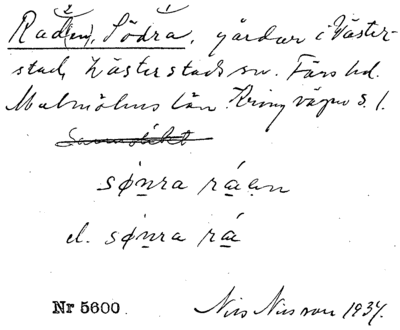 2 1
Rad(en), Södra, gårdar i Väster-
stad, Västerstads sn. Färs hd.
Malmöhus län. Kring vägen S. l.
sǿnra ráən
el. sǿnra rá
Nr 5600 Nils Nilsson 1937.